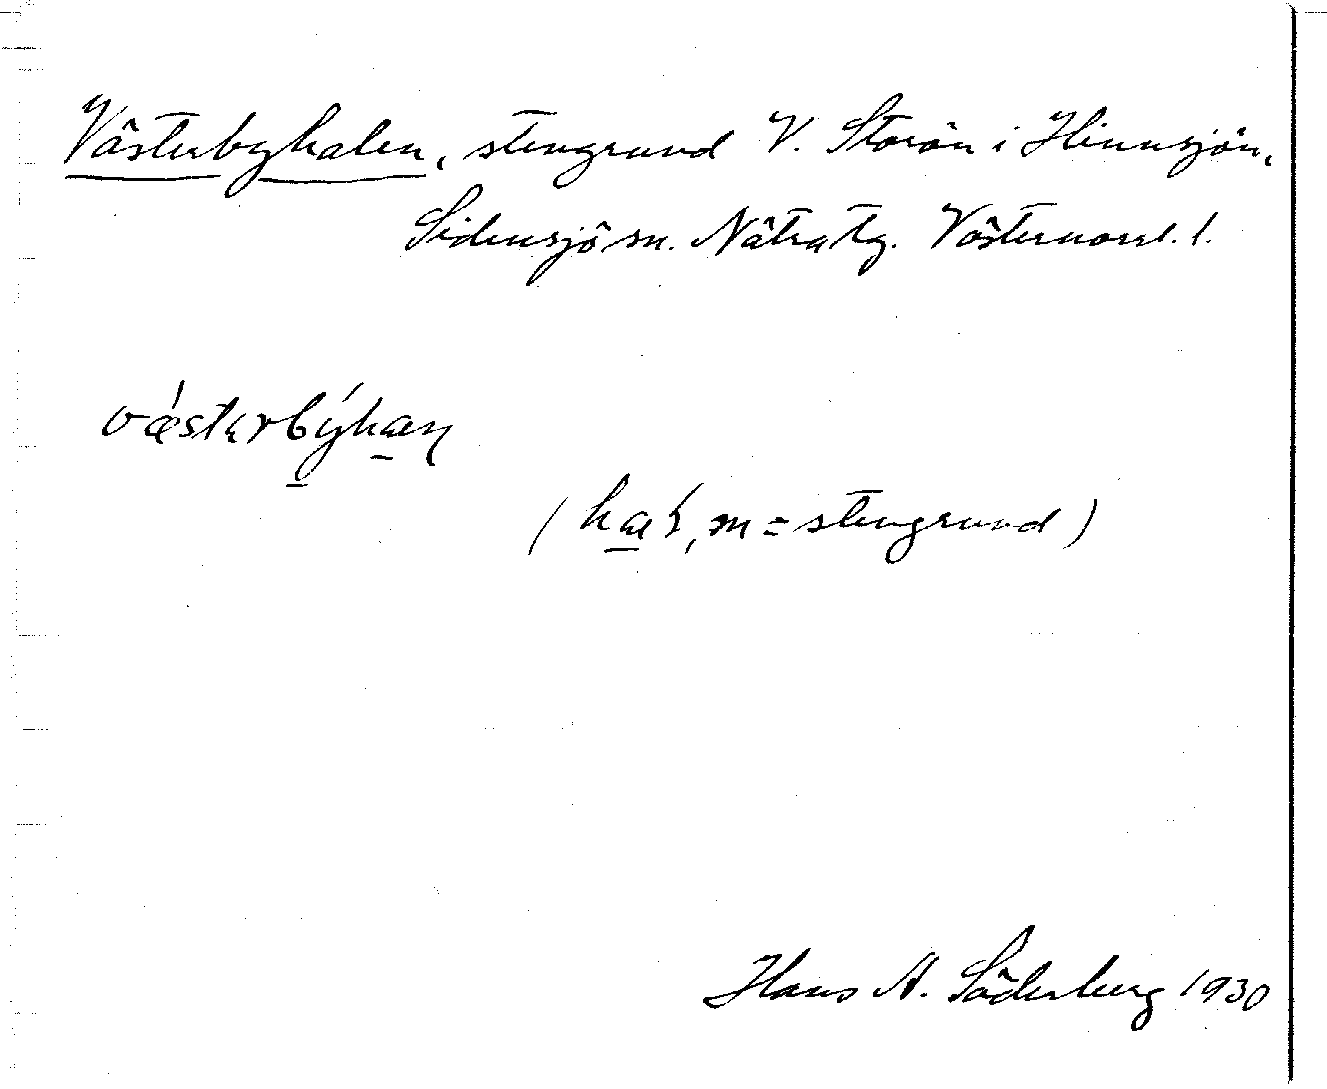 Västerbyhalen, stengrund V. Storön i Hinnsjön,
Sidensjö sn. Nätra tg. Västernorrl. l.
vǽstərbýhaɳ
(haɽ, m = stengrund)
Hans A. Söderberg 1930